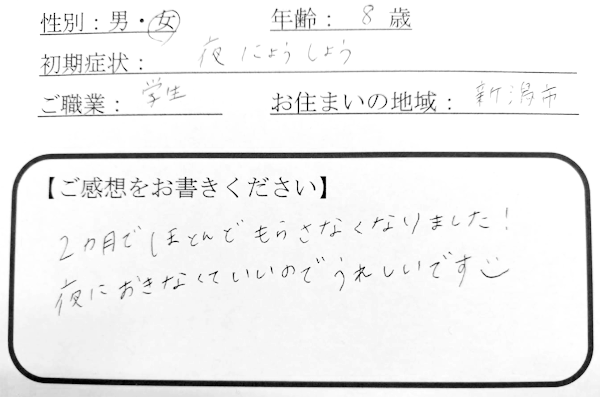 性別：男・女 年齢：8歳
初期症状：夜にょうしょう
ご職業：学生 お住まいの地域：新潟市
【ご感想をお書きください】
2ヵ月でほとんどもらさなくなりました！
夜におきなくていいのでうれしいです